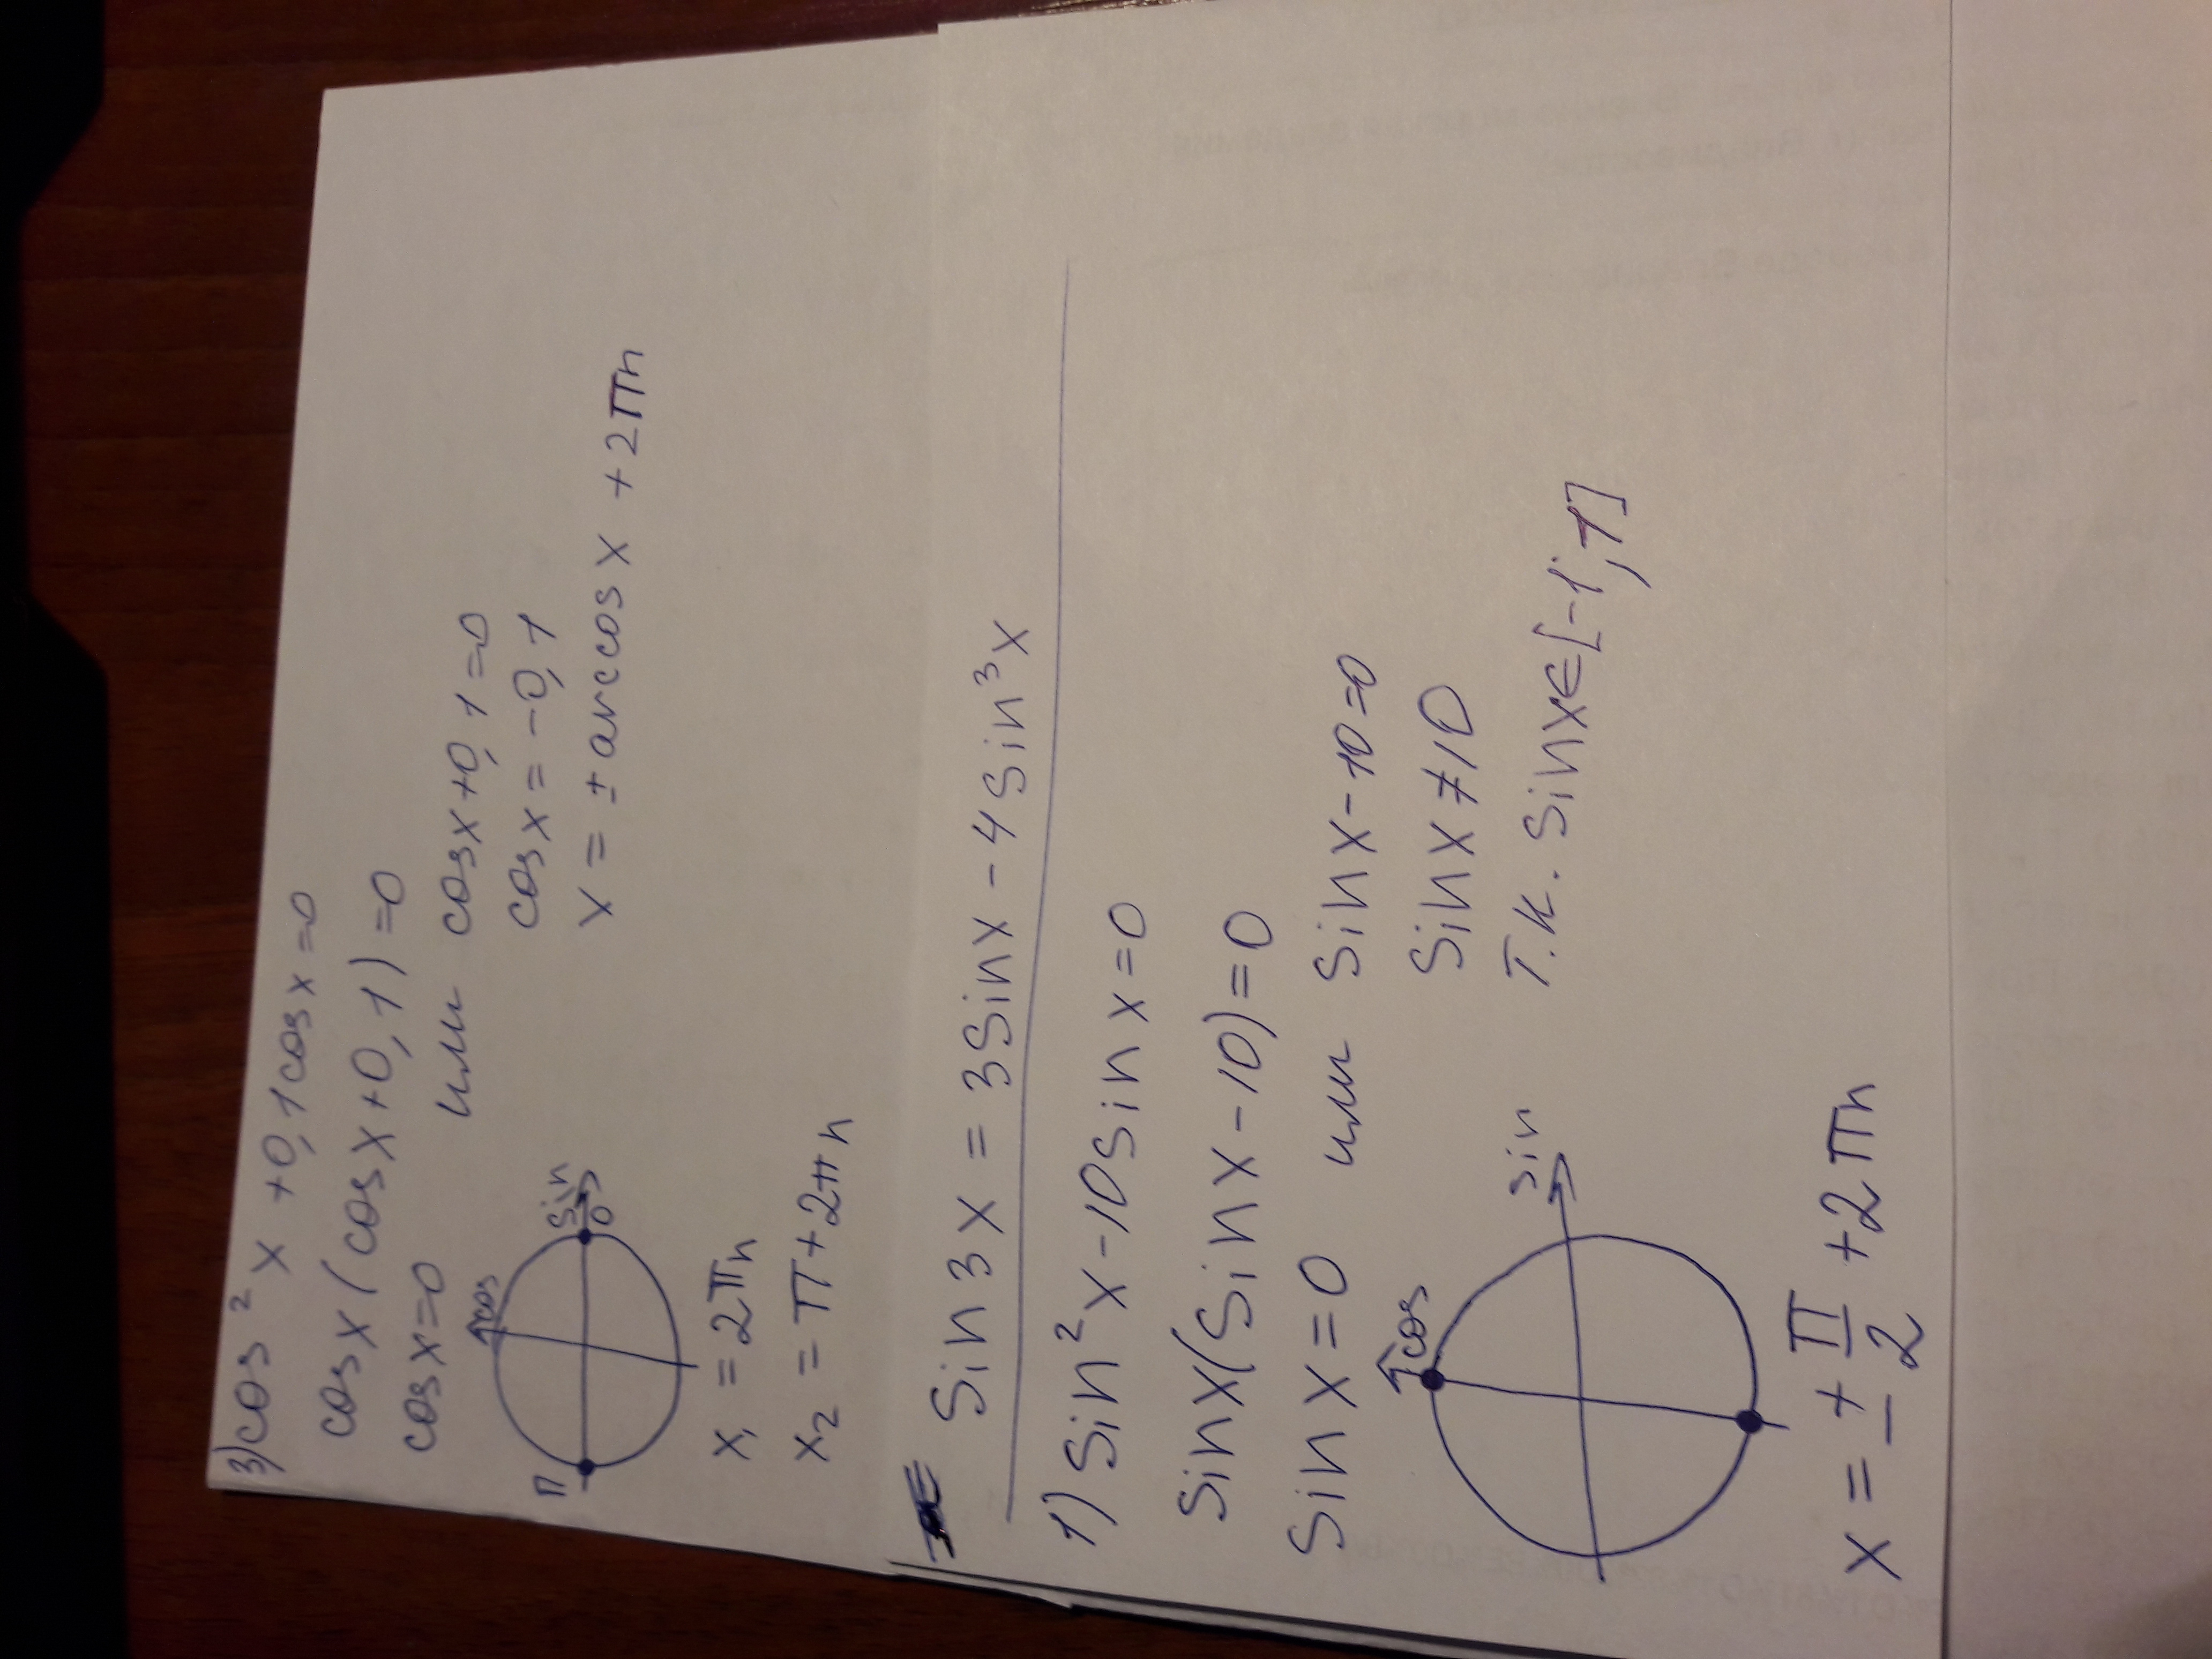 3) cos² x + 0,1 cos x = 0
cos x (cos x + 0,1) = 0
cos x = 0 или cos x + 0,1 = 0
cos x = -0,1
x = ± arccos x + 2πn
cos
π
sin
0
x₁ = 2πn
x₂ = π + 2πn
sin 3x = 3 sin x - 4 sin³ x
1) sin² x - 10 sin x = 0
sin x (sin x - 10) = 0
sin x = 0 или sin x - 10 = 0
sin x ≠ 10
т.к. sin x ∈ [-1; 1]
cos
sin
x = ± π/2 + 2πn